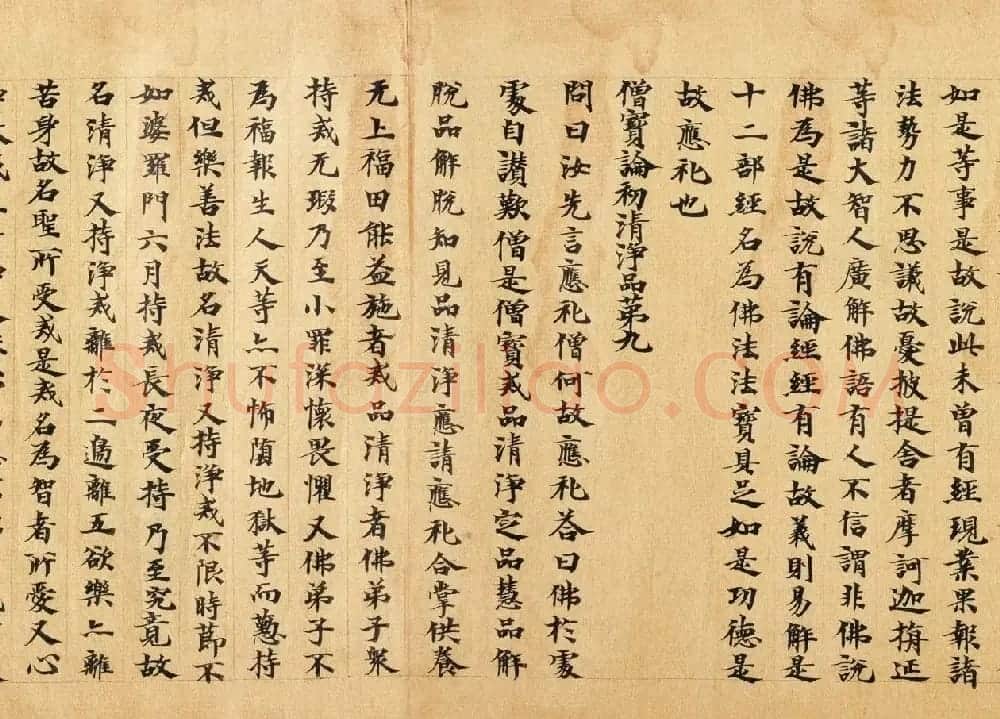 如是等事是故說此未曾有經現業果報諸
法勢力不思議故憂披提舍者摩訶迦旃延
等諸大智人廣解佛語有人不信謂非佛說
佛為是故說有論經經有論故義則易解是
十二部經名為佛法法寶具足如是功德是
故應礼也
僧寶論初清淨品第九
問曰汝先言應礼僧何故應礼荅曰佛於處
處自讚歎僧是僧寶戒品清淨定品慧品解
脫品解脫知見品清淨應請應礼合掌供養
无上福田能益施者戒品清淨者佛弟子眾
持戒无瑕乃至小罪深懷畏懼又佛弟子不
為福報生人天等亦不怖墮地獄等而懃持
戒但樂善法故名清淨又持淨戒不限時節不
如婆羅門六月持戒長夜受持乃至究竟故
名清淨又持淨戒離於二邊離五欲樂亦離
苦身故名聖所受戒是戒名為智者所愛又心
Shufaziliao.COM